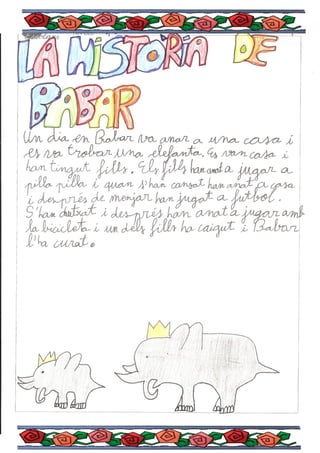 LA HISTORIA DE
BABAR
Un dia en Babar va anar a una casa i
es va trobar una elefanta. Es van casa i
han tingut fills. Els fills han anat a jugar a
pilla pilla i quan s'han cansat han anat a casa
i després de menjar han jugat a futbol.
S'han dutxat i després han anat a jugar amb
la bicicleta i un dels fills ha caigut i Babar
l'ha curat.